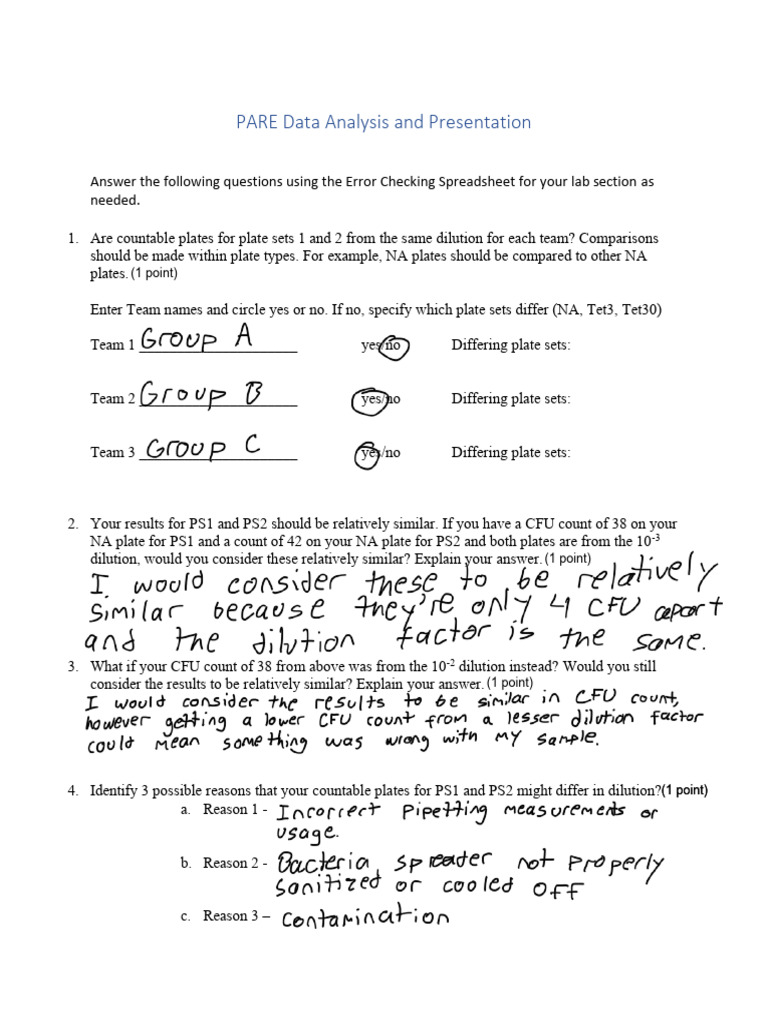 PARE Data Analysis and Presentation
Answer the following questions using the Error Checking Spreadsheet for your lab section as
needed.
1. Are countable plates for plate sets 1 and 2 from the same dilution for each team? Comparisons
should be made within plate types. For example, NA plates should be compared to other NA
plates. (1 point)
Enter Team names and circle yes or no. If no, specify which plate sets differ (NA, Tet3, Tet30)
Team 1 Group A yes/no Differing plate sets:
Team 2 Group B yes/no Differing plate sets:
Team 3 Group C yes/no Differing plate sets:
2. Your results for PS1 and PS2 should be relatively similar. If you have a CFU count of 38 on your
NA plate for PS1 and a count of 42 on your NA plate for PS2 and both plates are from the 10-3
dilution, would you consider these relatively similar? Explain your answer. (1 point)
I would consider these to be relatively
similar because they're only 4 CFU apart
and the dilution factor is the same.
3. What if your CFU count of 38 from above was from the 10-2 dilution instead? Would you still
consider the results to be relatively similar? Explain your answer. (1 point)
I would consider the results to be similar in CFU count,
however getting a lower CFU count from a lesser dilution factor
could mean something was wrong with my sample.
4. Identify 3 possible reasons that your countable plates for PS1 and PS2 might differ in dilution?(1 point)
a. Reason 1 - Incorrect pipetting measurements or
usage.
b. Reason 2 - Bacteria spreader not properly
sanitized or cooled off
c. Reason 3 – contamination